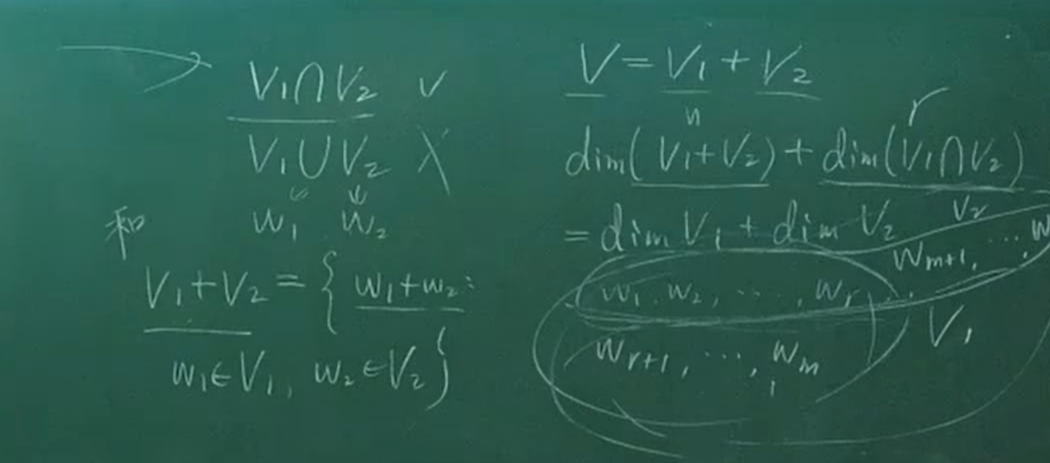 V₁∩V₂ ✓
V₁∪V₂ ✗
w₁ w₂
和
V₁+V₂ = { w₁+w₂ :
w₁∈V₁, w₂∈V₂ }
V = V₁ + V₂
n
r
dim(V₁+V₂) + dim(V₁∩V₂)
= dim V₁ + dim V₂
V₂
w_{m+1}, ...
w₁, w₂, ..., w_r
w_{r+1}, ..., w_m
V₁